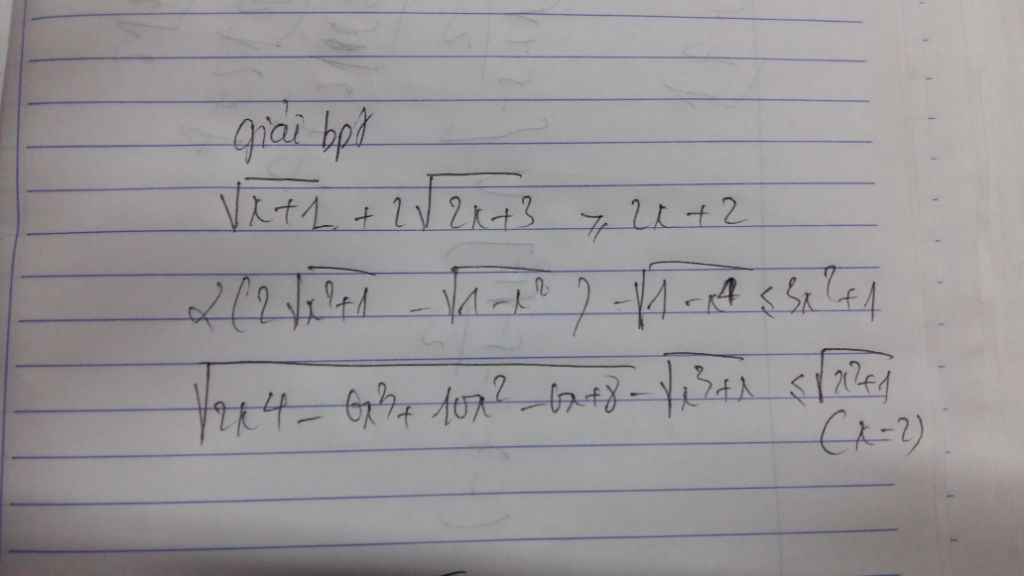 giải bpt
√(x+1) + 2√(2x+3) ≥ 2x + 2
2(2√(x²+1) - √(1-x²)) - √(1-x⁴) ≤ 3x²+1
√(2x⁴ - 6x³ + 10x² - 6x + 8) - √(x³+x) ≤ √(x²+1)
(x-2)